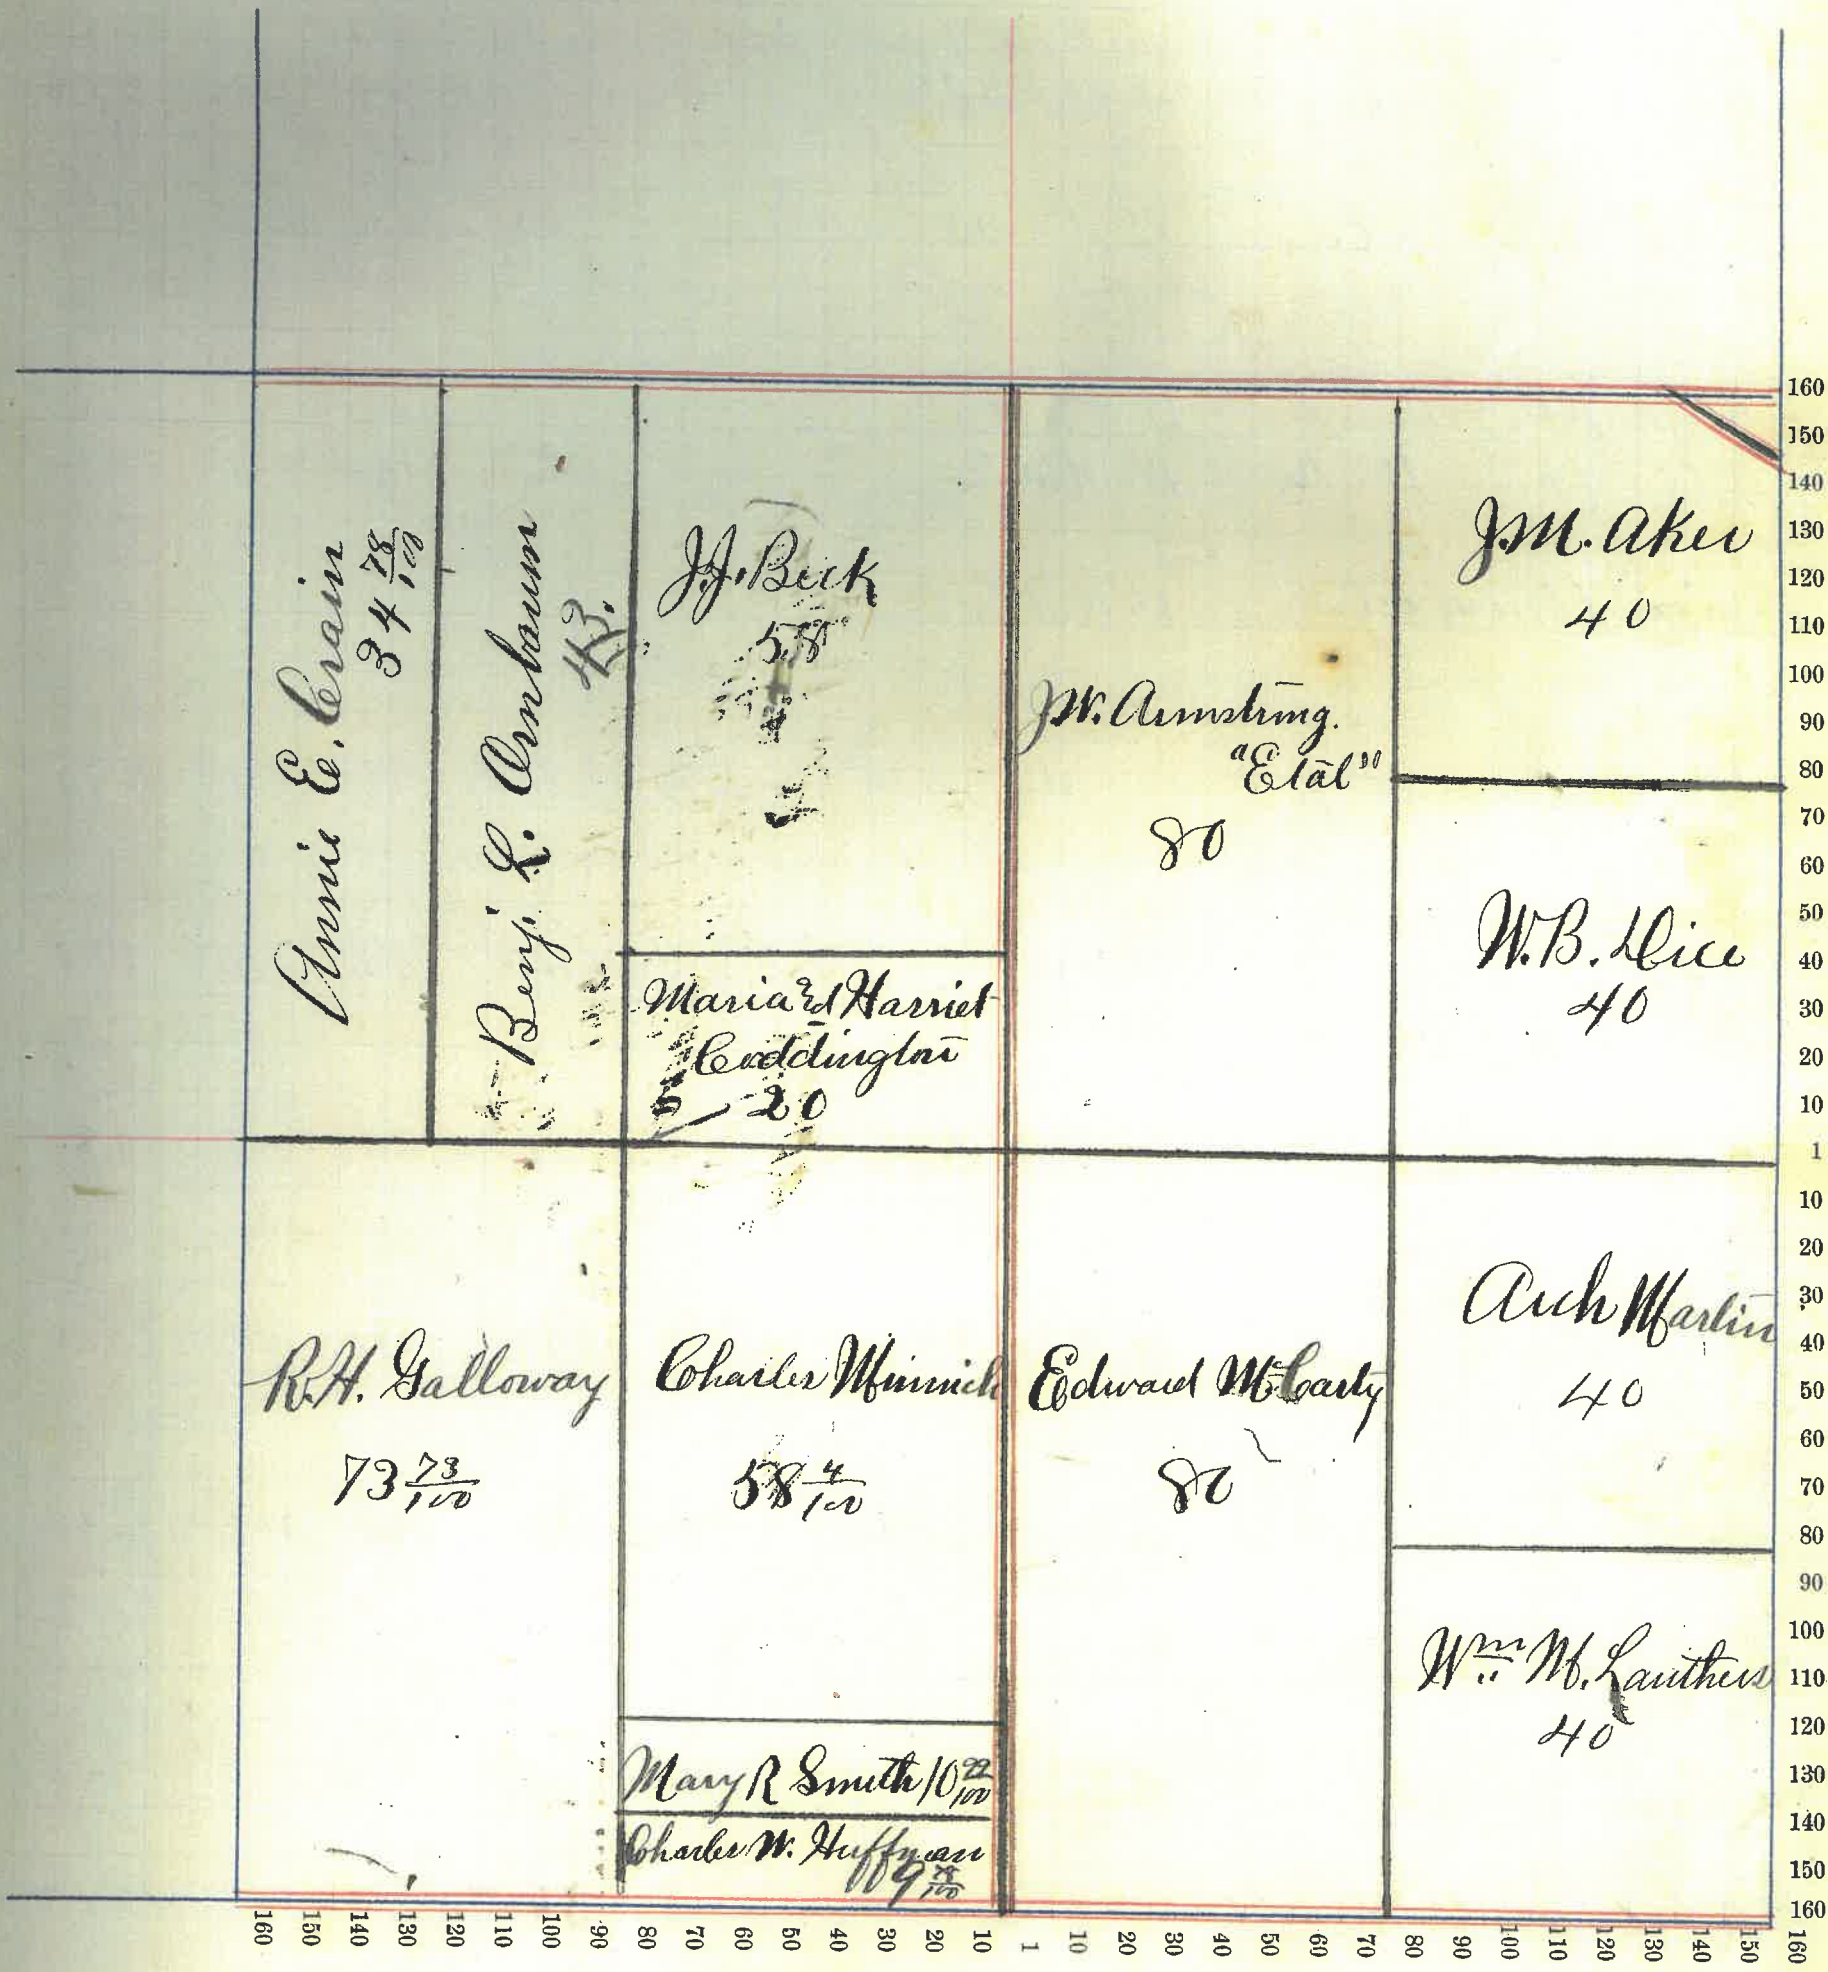 Annie E. Crain
34 78/100
Benj. L. Ornbaum
43.
J.J. Beck
58
Maria Ed Harriet
Coddington
20
J.W. Armstrong.
"Etal"
80
J.M. Aker
40
W.B. Dice
40
R.H. Galloway
73 73/100
Charles Minnich
58 4/100
Mary R Smith 10 22/100
Charles W. Huffman
9 78/100
Edward McCarty
80
Arch Martin
40
Wm M. Lauthers
40
160
150
140
130
120
110
100
90
80
70
60
50
40
30
20
10
1
10
20
30
40
50
60
70
80
90
100
110
120
130
140
150
160
160 150 140 130 120 110 100 90 80 70 60 50 40 30 20 10 1 10 20 30 40 50 60 70 80 90 100 110 120 130 140 150 160